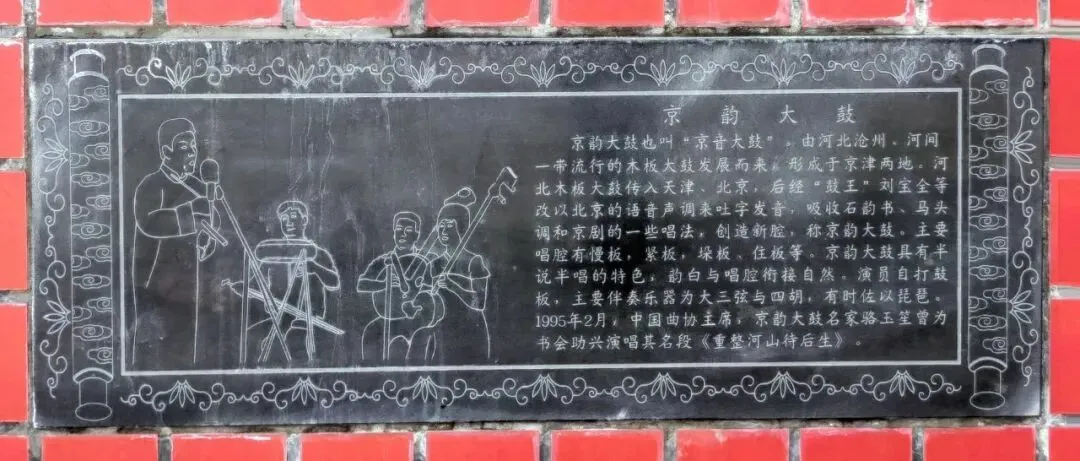 京韵大鼓
京韵大鼓也叫“京音大鼓”。由河北沧州、河间
一带流行的木板大鼓发展而来，形成于京津两地。河
北木板大鼓传入天津、北京，后经“鼓王”刘宝全等
改以北京的语音声调来吐字发音，吸收石韵书、马头
调和京剧的一些唱法，创造新腔，称京韵大鼓。主要
唱腔有慢板，紧板，垛板、住板等。京韵大鼓具有半
说半唱的特色，韵白与唱腔衔接自然。演员自打鼓
板，主要伴奏乐器为大三弦与四胡，有时佐以琵琶。
1995年2月，中国曲协主席，京韵大鼓名家骆玉笙曾为
书会助兴演唱其名段《重整河山待后生》。